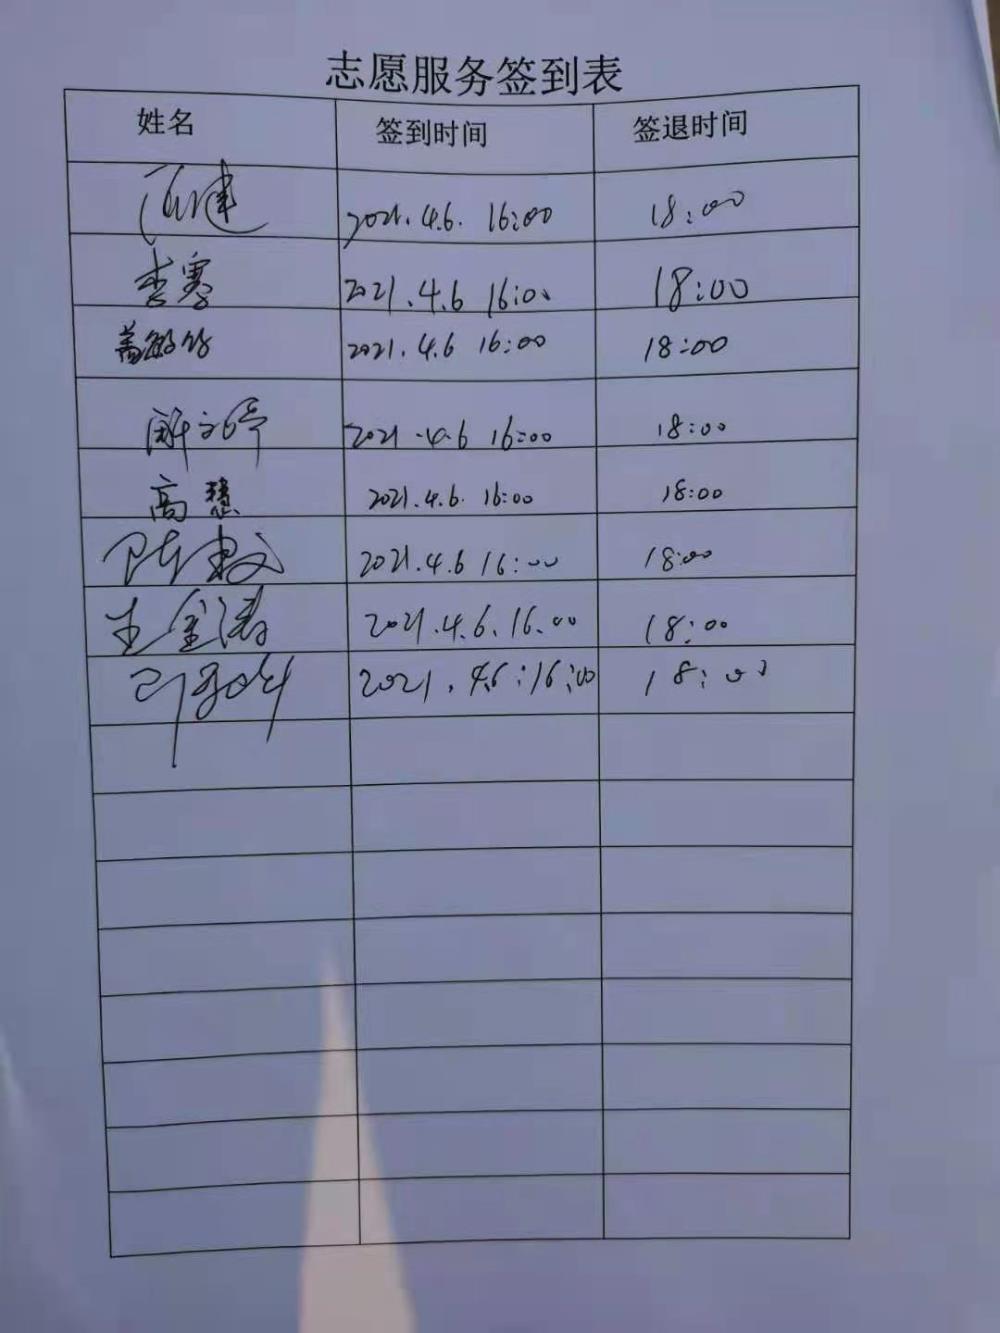 志愿服务签到表
姓名 签到时间 签退时间
2021.4.6. 16:00 18:00
李骞 2021.4.6 16:00 18:00
2021.4.6 16:00 18:00
2021.4.6 16:00 18:00
高慧 2021.4.6. 16:00 18:00
陈 2021.4.6 16:00 18:00
王金涛 2021.4.6. 16.00 18:00
2021.4.6:16:00 18:00